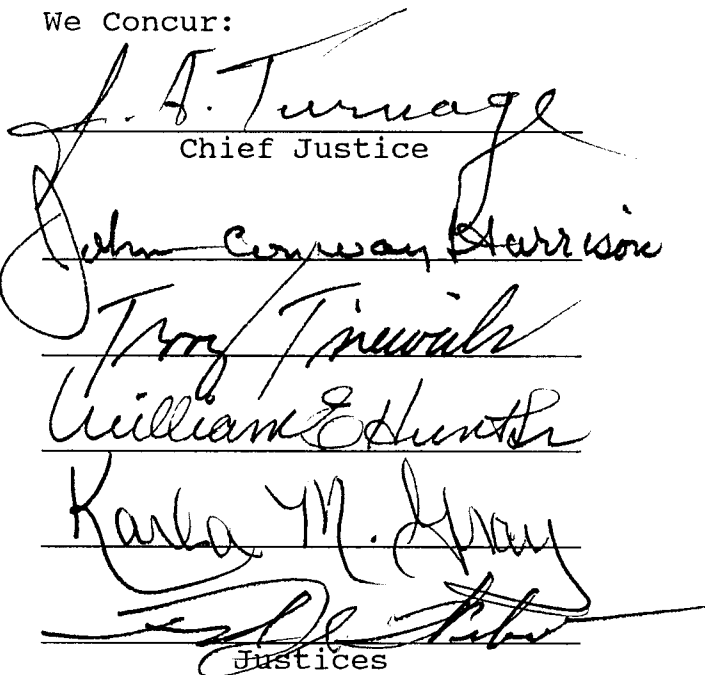 We Concur:
J. A. Turnage
Chief Justice
John Conway Harrison
Terry Trieweiler
William E Hunt Sr
Karla M. Gray
Justices